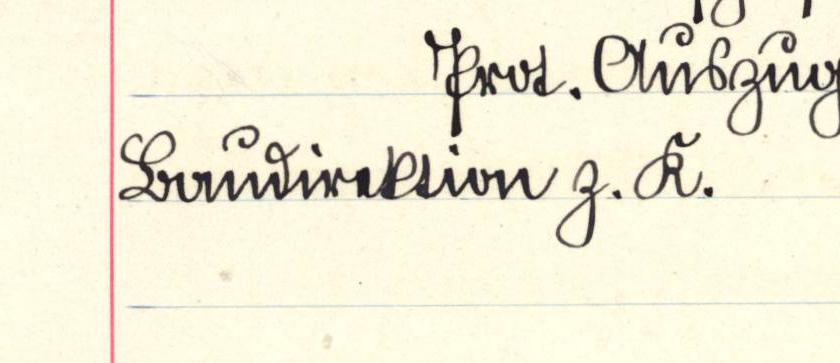 Prot. Auszug
Baudirektion z. K.